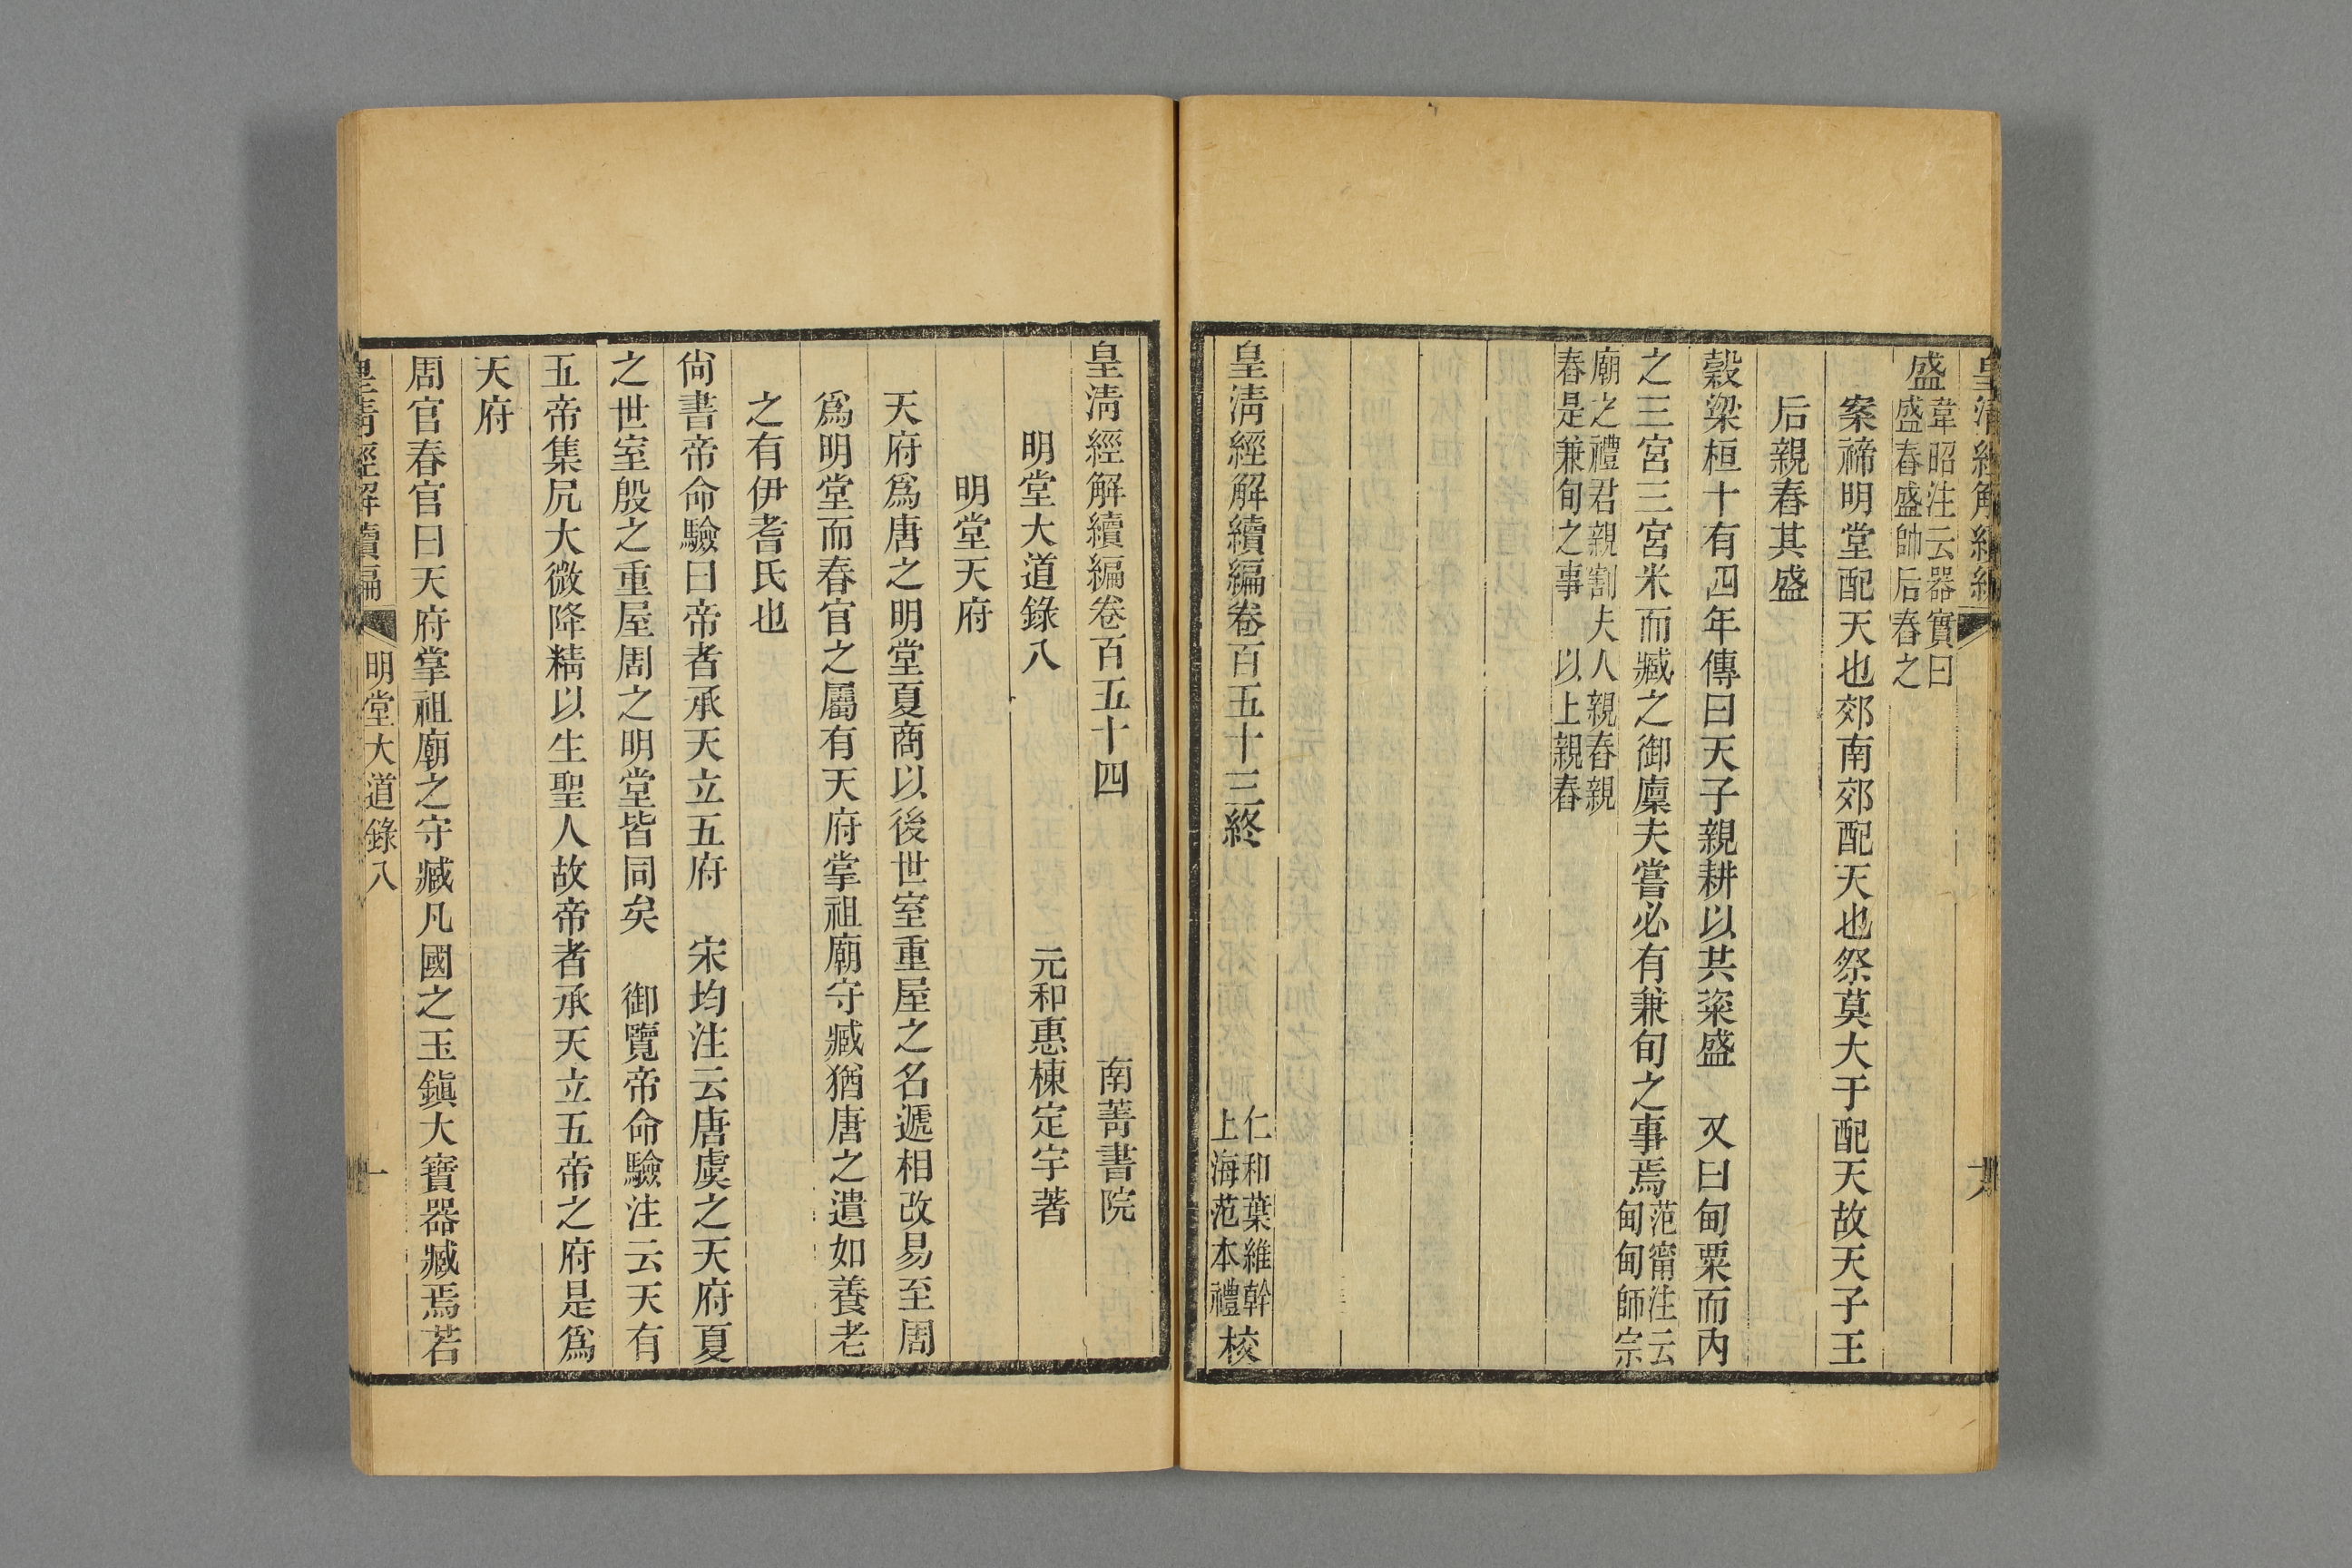 皇清經解續編
盛韋昭注云器實曰盛舂盛帥后舂之
案禘明堂配天也郊南郊配天也祭莫大于配天故天子王
后親舂其盛
穀梁桓十有四年傳曰天子親耕以共粢盛 又曰甸粟而內
之三宮三宮米而臧之御廩夫嘗必有兼旬之事焉范甯注云甸甸師宗
廟之禮君親割夫人親舂親舂是兼旬之事 以上親舂
皇淸經解續編卷百五十三終 仁和葉維幹上海范本禮校
皇淸經解續編卷百五十四 南菁書院
明堂大道錄八 元和惠棟定宇著
明堂天府
天府爲唐之明堂夏商以後世室重屋之名遞相改易至周
爲明堂而春官之屬有天府掌祖廟守臧猶唐之遺如養老
之有伊耆氏也
尙書帝命驗曰帝者承天立五府 宋均注云唐虞之天府夏
之世室殷之重屋周之明堂皆同矣 御覽帝命驗注云天有
五帝集凥大微降精以生聖人故帝者承天立五帝之府是爲
天府
周官春官曰天府掌祖廟之守臧凡國之玉鎭大寶器臧焉若
皇淸經解續編 明堂大道錄八 一